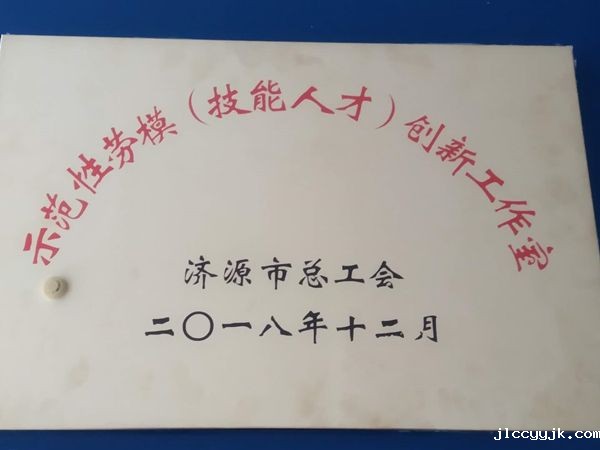 示范性劳模（技能人才）创新工作室
济源市总工会
二〇一八年十二月
jlccyyjk.com